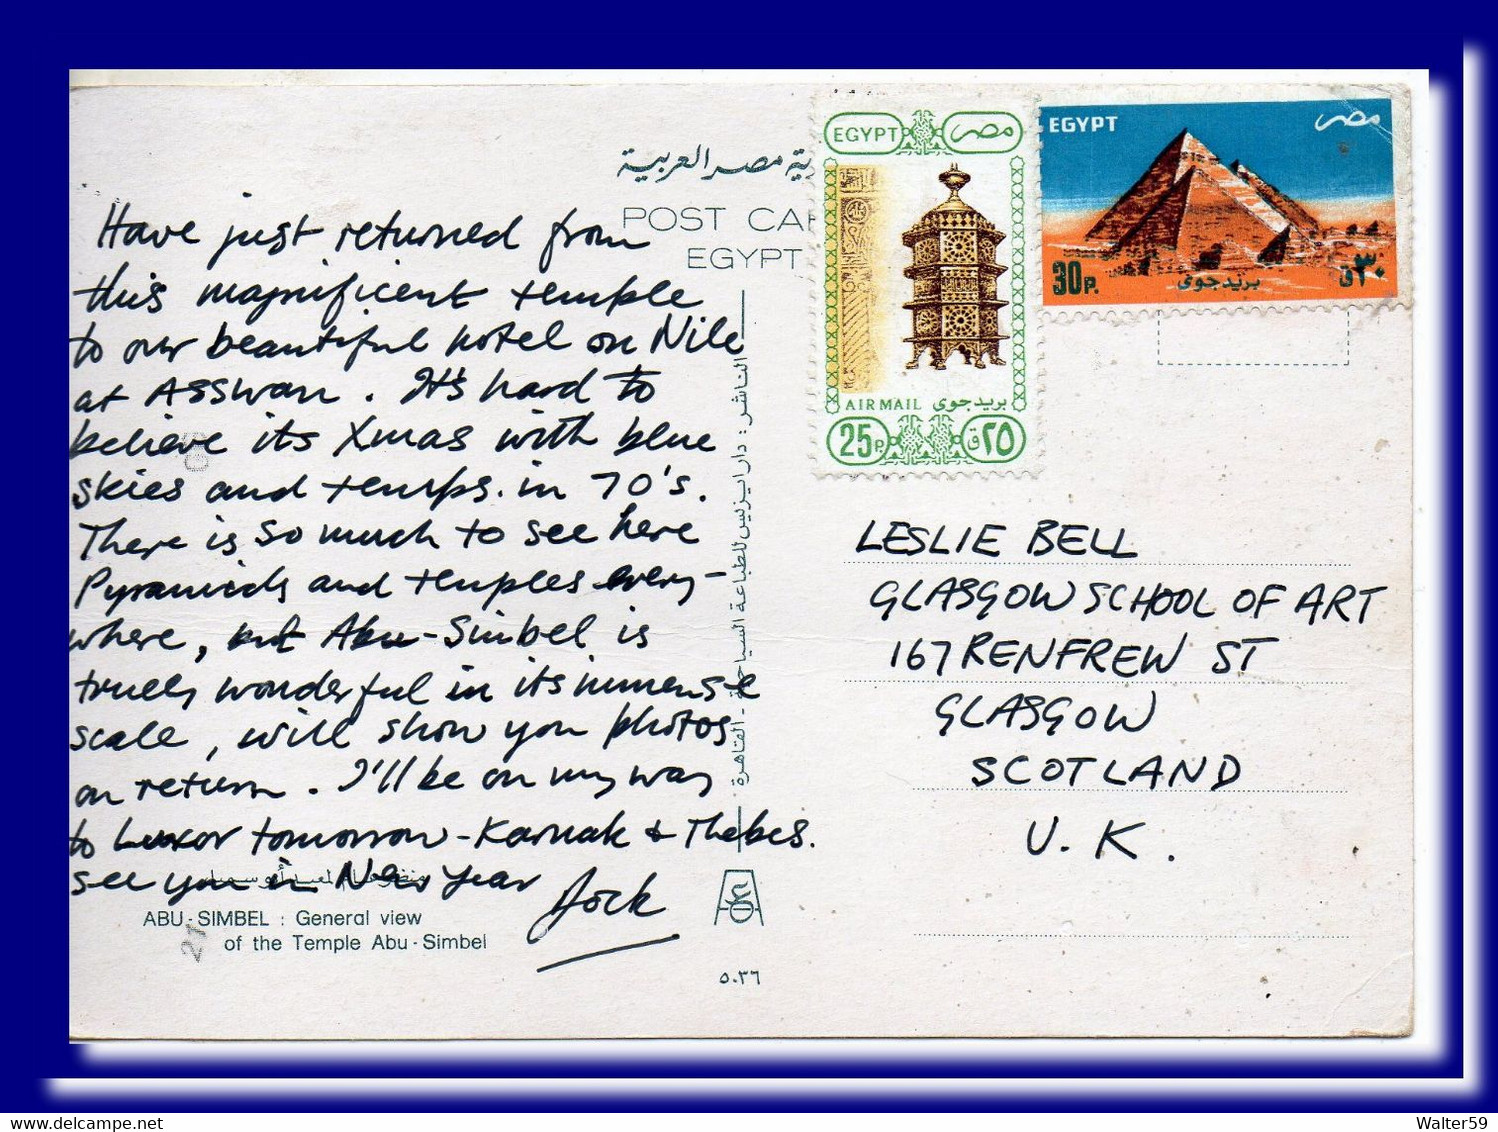 جمهورية مصر العربية
POST CA
EGYPT
EGYPT مصر
AIR MAIL بريد جوى
25P. ٢٥ق
EGYPT مصر
30P. بريد جوى ٣٠ق
Have just returned from
this magnificent temple
to our beautiful hotel on Nile
at ASSWAN. It's hard to
believe its Xmas with blue
skies and temps. in 70's.
There is so much to see here
Pyramids and temples every-
where, but Abu-Simbel is
truely wonderful in its immense
scale, will show you photos
on return. I'll be on my way
to Luxor tomorrow - Karnak & Thebes.
See you in New Year
Jock
LESLIE BELL
GLASGOW SCHOOL OF ART
167 RENFREW ST
GLASGOW
SCOTLAND
U.K.
الناشر : دار ايزيس للطباعة السياحية - القاهرة
ABU-SIMBEL : General view
of the Temple Abu-Simbel
٥٠٣٦
Walter59